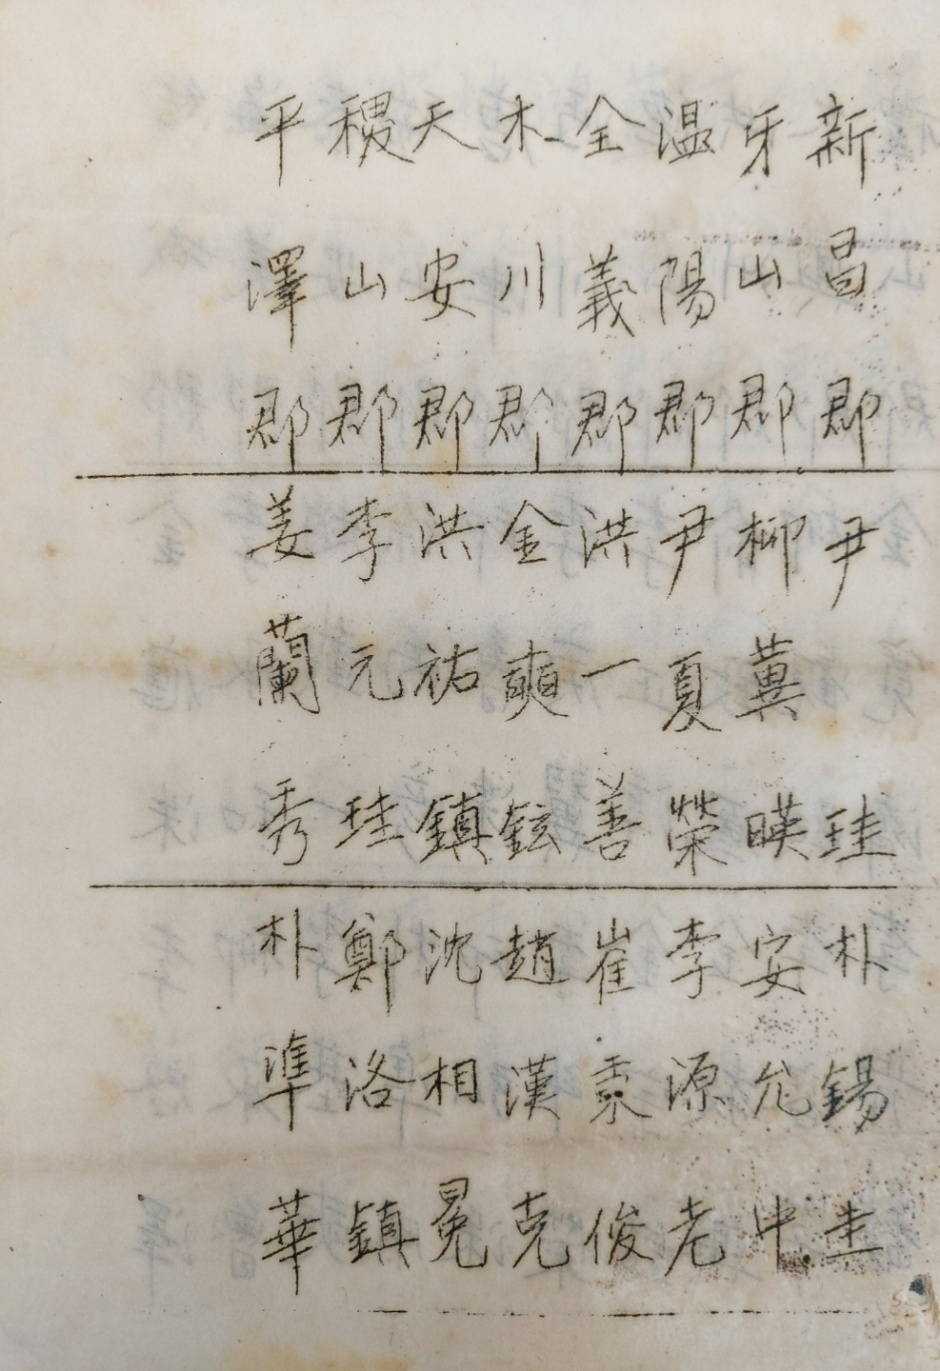 新昌郡 尹珪 朴錫圭
牙山郡 柳冀暎 安允中
温陽郡 尹夏榮 李源老
全義郡 洪一善 崔秉俊
木川郡 金奭鉉 趙漢克
天安郡 洪祐鎮 沈相冕
稷山郡 李元珪 鄭洛鎮
平澤郡 姜蘭秀 朴準華